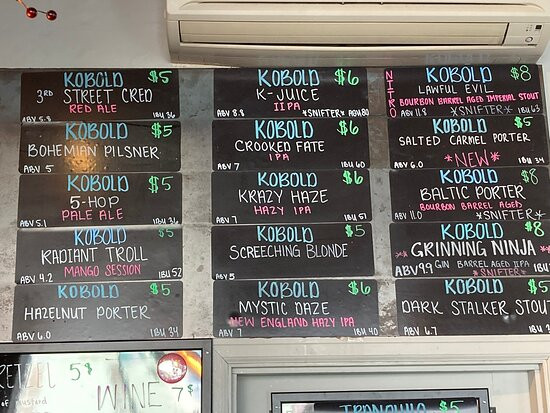 KOBOLD $5
3RD STREET CRED
RED ALE
ABV 5.8 IBU 36
KOBOLD $5
BOHEMIAN PILSNER
ABV 5
KOBOLD $5
5-HOP
PALE ALE
ABV 5.1 IBU 36
KOBOLD $5
RADIANT TROLL
MANGO SESSION
ABV 4.2 IBU 52
KOBOLD $5
HAZELNUT PORTER
ABV 6.0 IBU 34
KOBOLD $6
K-JUICE
IIPA
ABV 8.8 *SNIFTER* IBU 80
KOBOLD $6
CROOKED FATE
IPA
ABV 7 IBU 60
KOBOLD $6
KRAZY HAZE
HAZY IPA
ABV 7 IBU 51
KOBOLD $5
SCREECHING BLONDE
ABV 5
KOBOLD $6
MYSTIC DAZE
NEW ENGLAND HAZY IPA
ABV 7 IBU 40
NITRO
KOBOLD $8
LAWFUL EVIL
BOURBON BARREL AGED IMPERIAL STOUT
ABV 11.8 *SNIFTER* IBU 63
KOBOLD $5
SALTED CARMEL PORTER
*NEW*
ABV 6.0 IBU 34
KOBOLD $8
BALTIC PORTER
BOURBON BARREL AGED
ABV 11.0 *SNIFTER*
KOBOLD $8
*GRINNING NINJA*
ABV 9.9 GIN BARREL AGED IIPA IBU
*SNIFTER*
KOBOLD $5
DARK STALKER STOU
ABV 6.7 IBU 3
RETZEL 5$
of mustard
WINE 7$
TRANQUIL $5